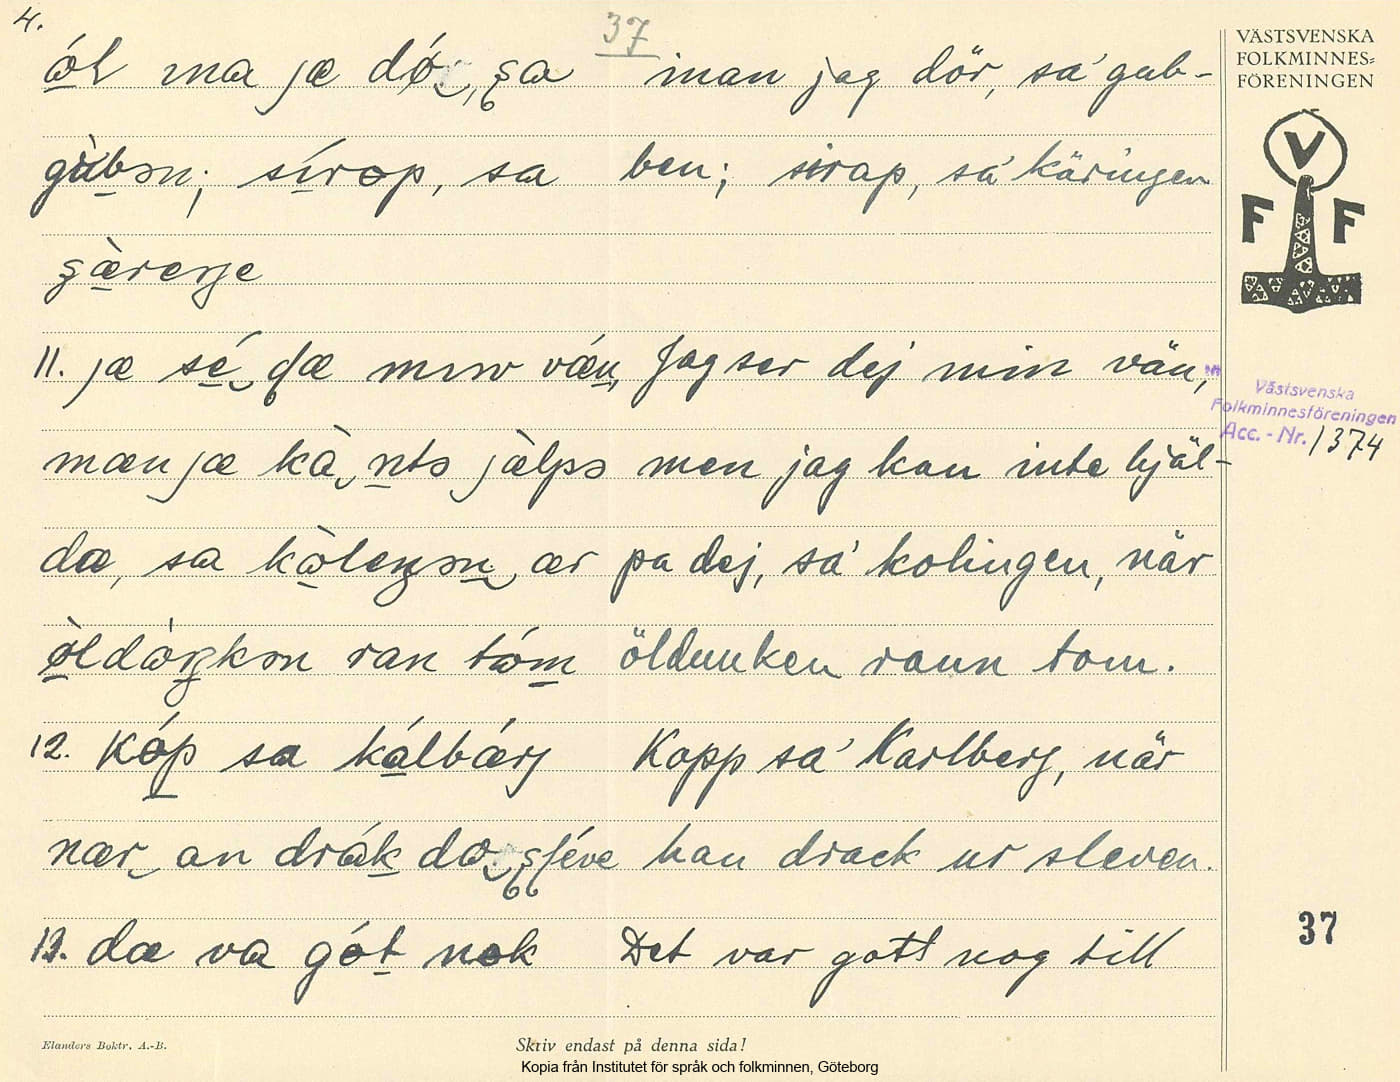 4.
37
ǿl ma jæ dǿ, sa innan jag dör, sa' gub-
gùbən; sírop, sa ben; sirap, sa' käringen
sæ̀reŋe
11. jæ sé dæ mɪn vǽn, Jag ser dej min vän,
mæn jæ kà ntə jæ̀lpə men jag kan inte hjäl-
dæ, sa kòleŋən ær pa dej, sa' kolingen, när
ø̀ldòŋkən ran tóm öldunken rann tom.
12. Kóp sa kálbǽrj Kopp sa' Karlberg, när
nær an drák dø sléve han drack ur sleven.
13. dæ va gót nok Det var gott nog till
VÄSTSVENSKA
FOLKMINNES=
FÖRENINGEN
V
F F
Västsvenska
Folkminnesföreningen
Acc.-Nr. 1374
37
Elanders Boktr. A.-B.
Skriv endast på denna sida!
Kopia från Institutet för språk och folkminnen, Göteborg